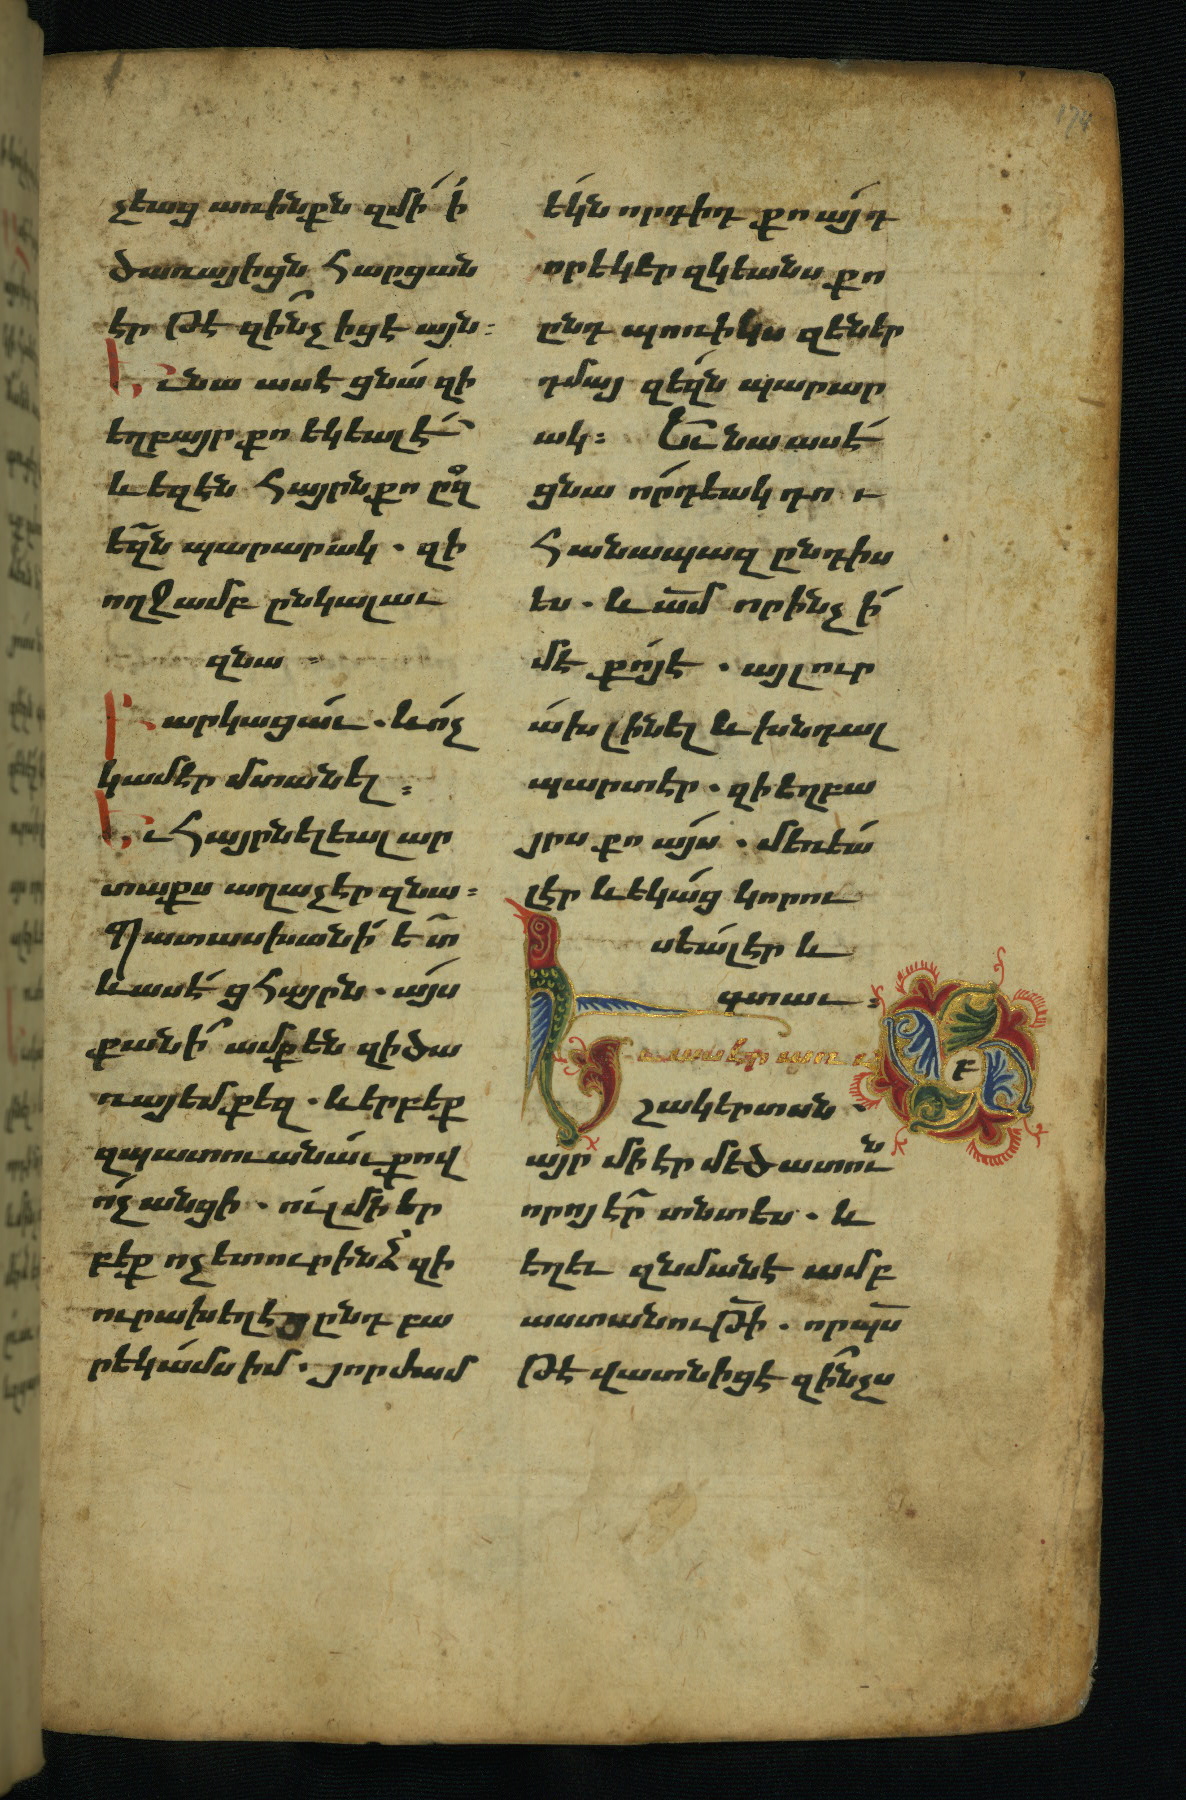 174
չեաց առինքն զմի ի
ծառայիցն հարցան
էր թէ զինչ իցէ այն։
Եւ նա ասէ ցնա զի
եղբայր քո եկեալ է
և եզէն հայրն քո ըզ
եզն պարարակ . զի
ողջամբ ընկալաւ
զնա
Բարկացաւ . և ոչ
կամէր մտանել ։
Եւ հայրն ելեալ ար
տաքս աղաչէր զնա ։
Պատասխանի ետ
և ասէ ցհայրն . այս
քանի ամք են զի ծա
ռայեմ քեզ . և երբեք
զպատուիրանաւ քով
ոչ անցի . ուլ մի եր
բեք ոչ ետուր ինձ զի
ուրախ եղէց ընդ բա
րեկամս իմ . յորժամ
եկն որդիդ քո այդ
որ եկեր զկեանս քո
ընդ պոռնիկս զեներ
դմա զեզն պարար
ակ ։ Եւ նա ասէ
ցնա որդեակ դու
հանապազ ընդ իս
ես . և ամ որ ինչ ի
մ է քոյ է . այլ ուր
ախ լինել և խնդալ
պարտ էր . զի եղբա
յրս քո այս . մեռեա
լ էր և եկաց կորու
սեալ էր և
գտաւ ։
Եւ ասէր առ ա
բ
շակերտսն .
այր մի էր մեծատուն
որոյ էր տնտես . և
եղեւ զնմանէ ամբ
աստանութի . որպս
թէ վատնիցէ զինչս